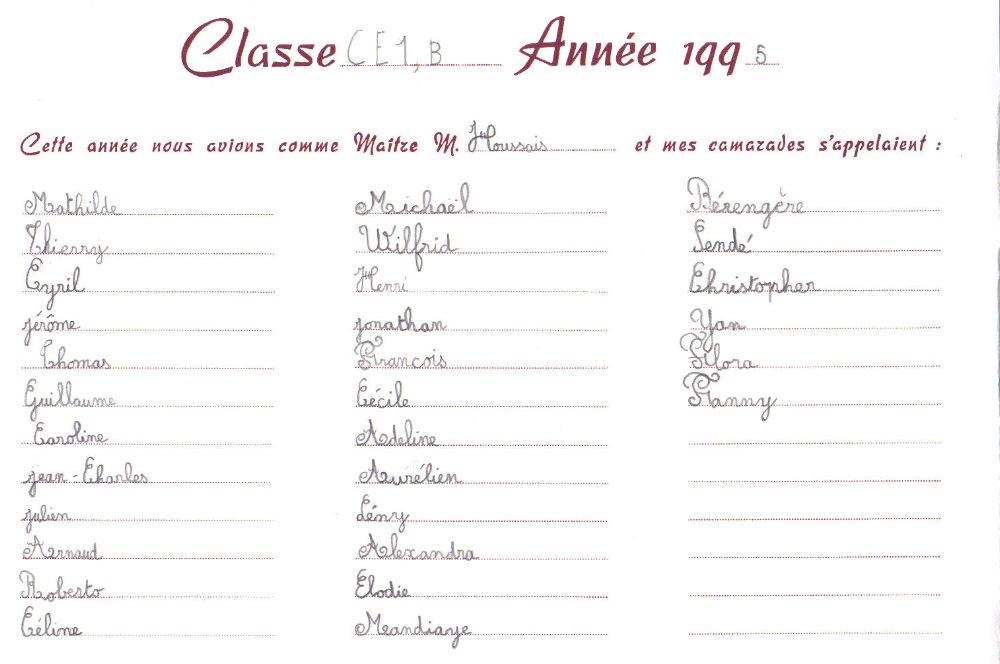 Classe CE1, B Année 1995
Cette année nous avions comme Maître M. Houssais et mes camarades s'appelaient :
Mathilde
Thierry
Cyril
jérôme
Thomas
Guillaume
Caroline
jean-Charles
julien
Arnaud
Roberto
Céline
Michaël
Wilfrid
Henri
jonathan
Francois
Cécile
Adeline
Aurélien
Lény
Alexandra
Elodie
Mandiaye
Bérengère
Sendé
Christopher
Yan
Flora
Fanny